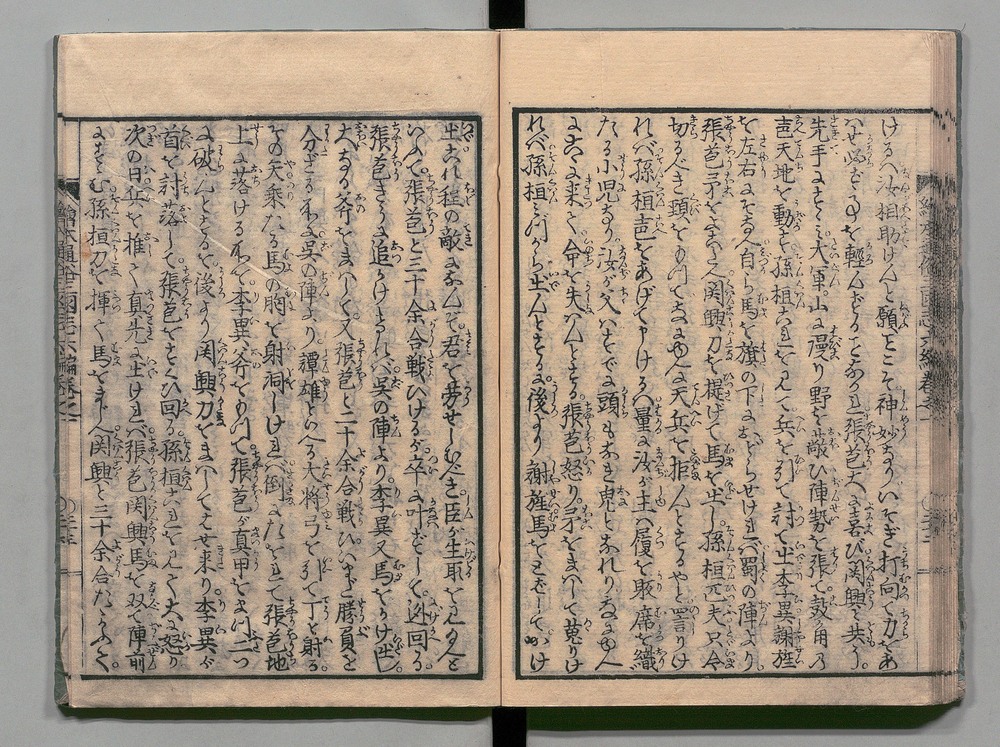 ける八汝相助けんと願ふこそ神妙なりいそぎ打向て力をあ
はせ必ず敵を軽んずることなかれ張苞大に喜び関興と共に
先手にすゝみ大軍山に漫り野を蔽ひ陣勢を張て鼓角乃
声天地を動す孫桓これをみて兵を引て討て出李異謝旌
を左右にそなへ自ら馬を旗の下にたてらせければ蜀の陣より
張苞矛をよこたへ関興刀を提げて馬を出し孫桓元夫只今
切るべき頭をもつてなんぞ天兵を拒んとするやと罵りけ
れバ孫桓声をあげて申しける八量に汝が主ハ履を販席を織
たる小児なり汝が父ハすでに頭もなき鬼となれりなんぞ又
こゝに来て命を失ハんとする張苞怒り矛をまハして蒐りけ
れバ孫桓ミづから出んとする後より謝旌馬をとばしてかけ
出これ程の敵になんぞ君を労せしむべき臣が生取をみ給へと
いふて張苞と三十余合戦ひけるが卒に叶ずして迯回る
張苞きうに追かけければ呉の陣より李異又馬をかけ出し
大なる斧をまハして又張苞と二十余合戦ひいまだ勝負を
分ざる所に呉の陣より譚雄といへる大将弓を引て丁と射る
その矢乗たる馬の胸を射洞しければ倒にたをれて張苞地
上に落ける所を李異斧をもつて張苞が真甲をまつ二つ
に破んとするを後より関興刀をまハしてはせ来り李異が
首を討落して張苞をすくひ回る孫桓これをみて大に怒り
次の日兵を推て真先に出ければ張苞関興馬を双て陣前
にすゝむ孫桓刀を揮て馬をまじへ関興と三十余合たゝかふて